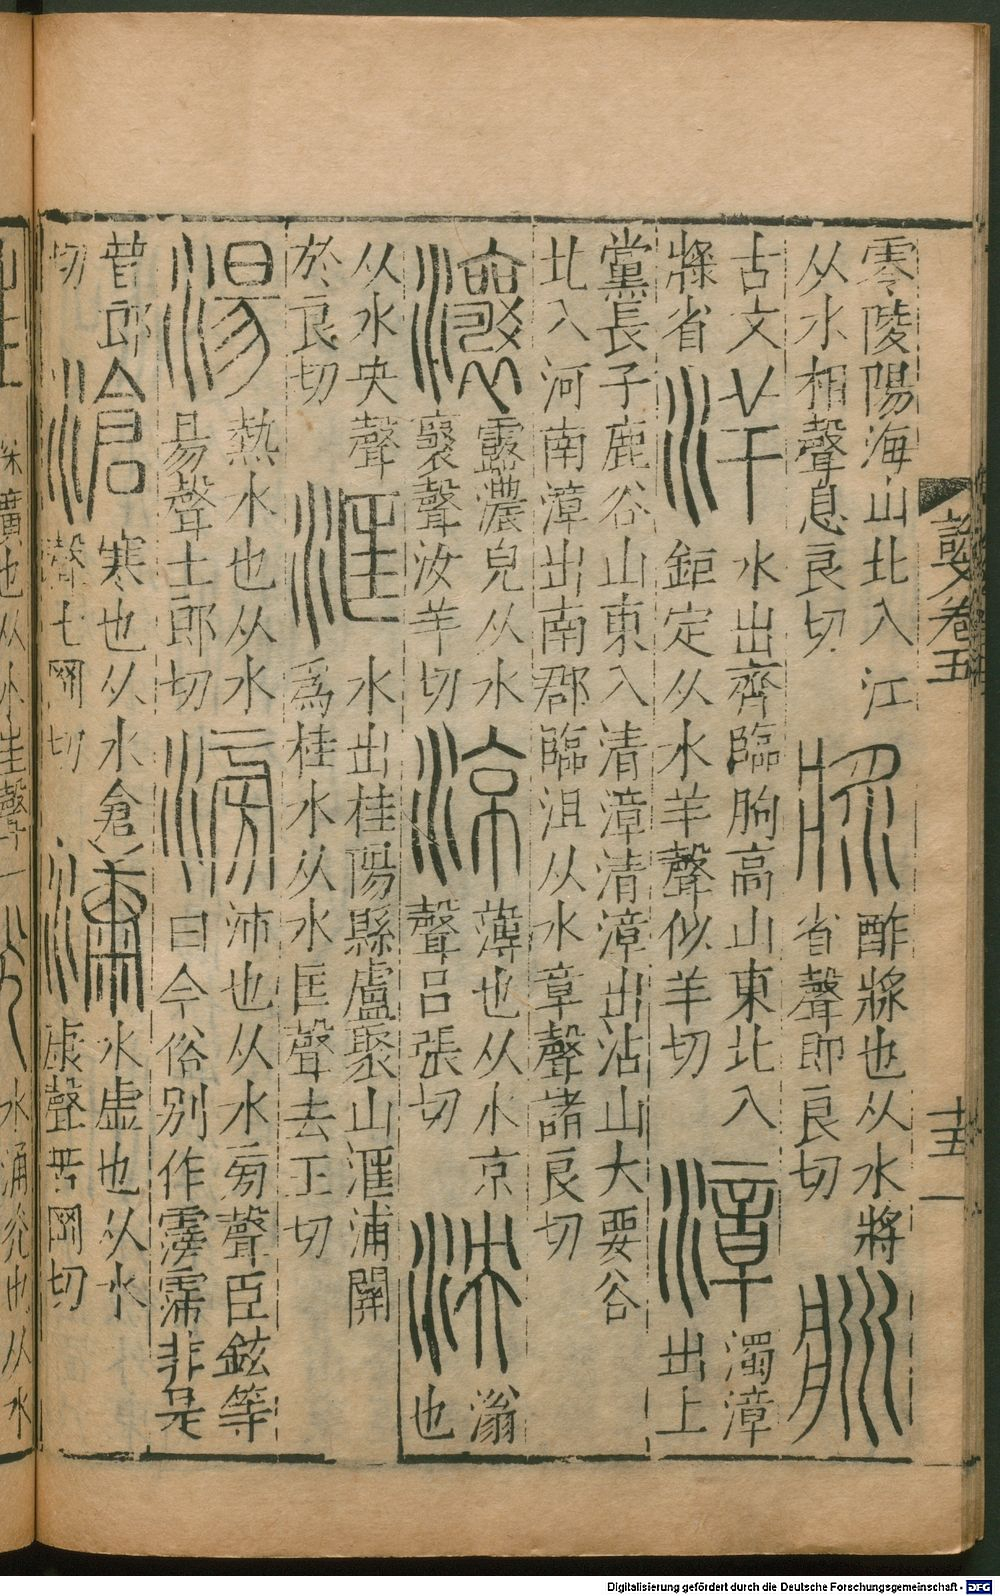 說文卷五
零陵陽海山北入江
从水相聲息良切
漿
酢漿也从水將
省聲即良切
古文
漿省
洋
水出齊臨朐高山東北入
鉅定从水羊聲似羊切
漳
濁漳
出上
黨長子鹿谷山東入清漳清漳出沾山大要谷
北入河南漳出南郡臨沮从水章聲諸良切
瀼
露濃皃从水
襄聲汝羊切
涼
薄也从水京
聲呂張切
泱
滃
也
从水央聲
於良切
洭
水出桂陽縣盧聚山洭浦關
爲桂水从水匡聲去王切
湯
熱水也从水
昜聲土郎切
滂
沛也从水㫄聲臣鉉等
曰今俗別作霶霈非是
普郎
切
滄
寒也从水倉
聲七岡切
漮
水虛也从水
康聲苦岡切
Digitalisierung gefördert durch die Deutsche Forschungsgemeinschaft - DFG